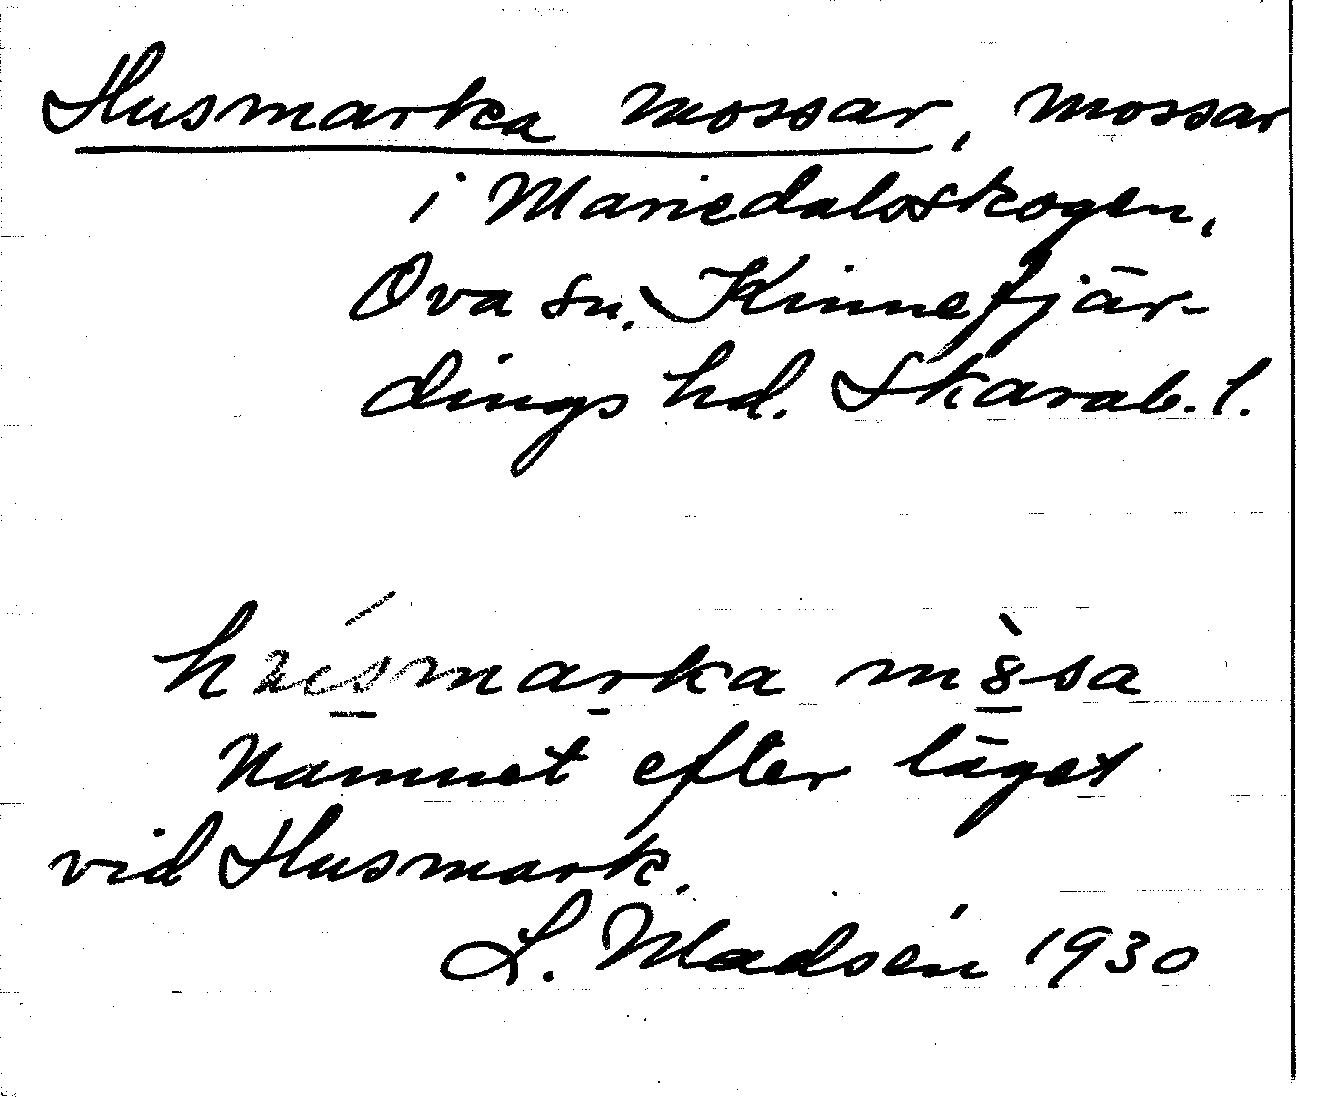 Husmarka mossar, mossar
i Mariedalsskogen,
Ova sn. Kinnefjär-
dings hd. Skarab. l.
marka m8̀sa
Namnet efter läget
vid Husmark.
L. Madsén 1930